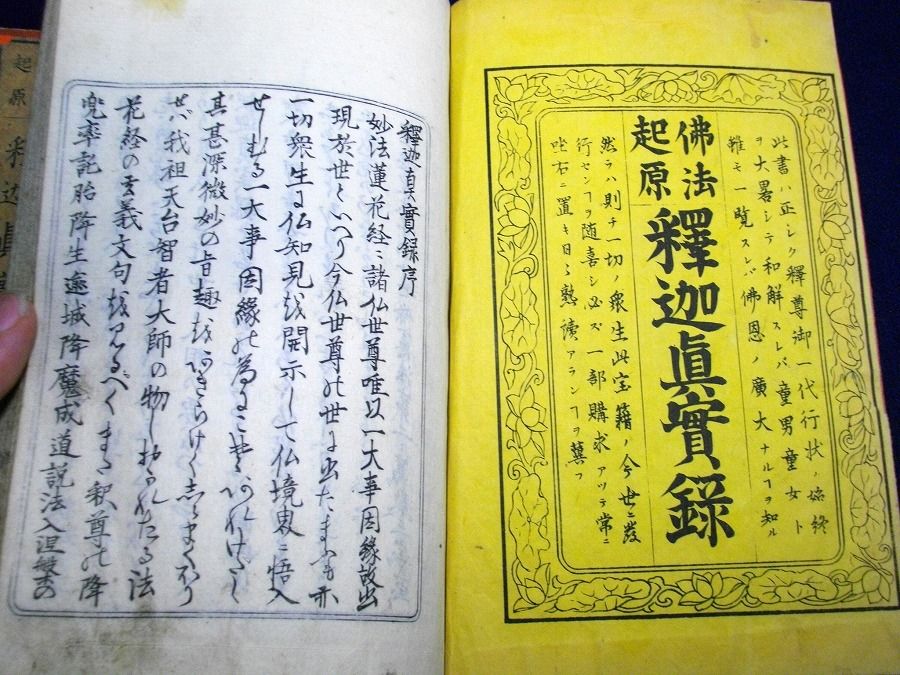 此書ハ正シク釋尊御一代行状ノ始終
ヲ大畧シテ和解スレバ童男童女ト
雖モ一覧スレバ佛恩ノ廣大ナルヿヲ知ル
佛法
起原
釋迦眞實録
然ラハ則チ一切ノ衆生此宝籍ノ今世ニ發
行センヿヲ随喜シ必ズ一部購求アツテ常ニ
坐右ニ置キ日々熟讀アランヿヲ冀フ
釋迦真實録序
妙法蓮花経ニ諸仏世尊唯以一大事因縁故出
現於世といへり今仏世尊の世に出たまふも亦
一切衆生に仏知見を開示して仏境界ニ悟入
せしむる一大事因縁の為にこそ
其甚深微妙の旨趣を
せバ我祖天台智者大師の物しおかれたる法
花経の玄義文句を見るべくまた釈尊の降
兜率託胎降生逾城降魔成道説法入涅槃の
起原
釈迦眞